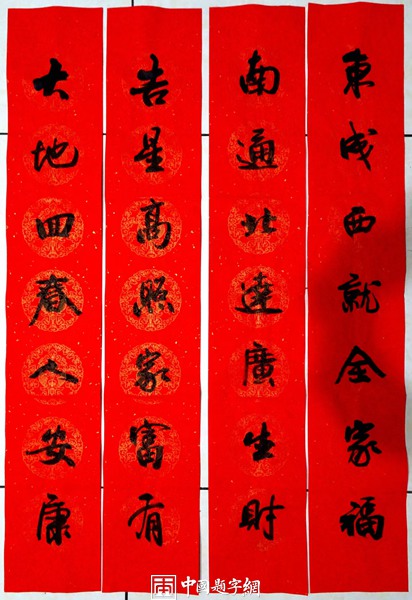 東成西就全家福
南通北達廣生財
吉星高照家富有
大地回春人安康
中國题字網